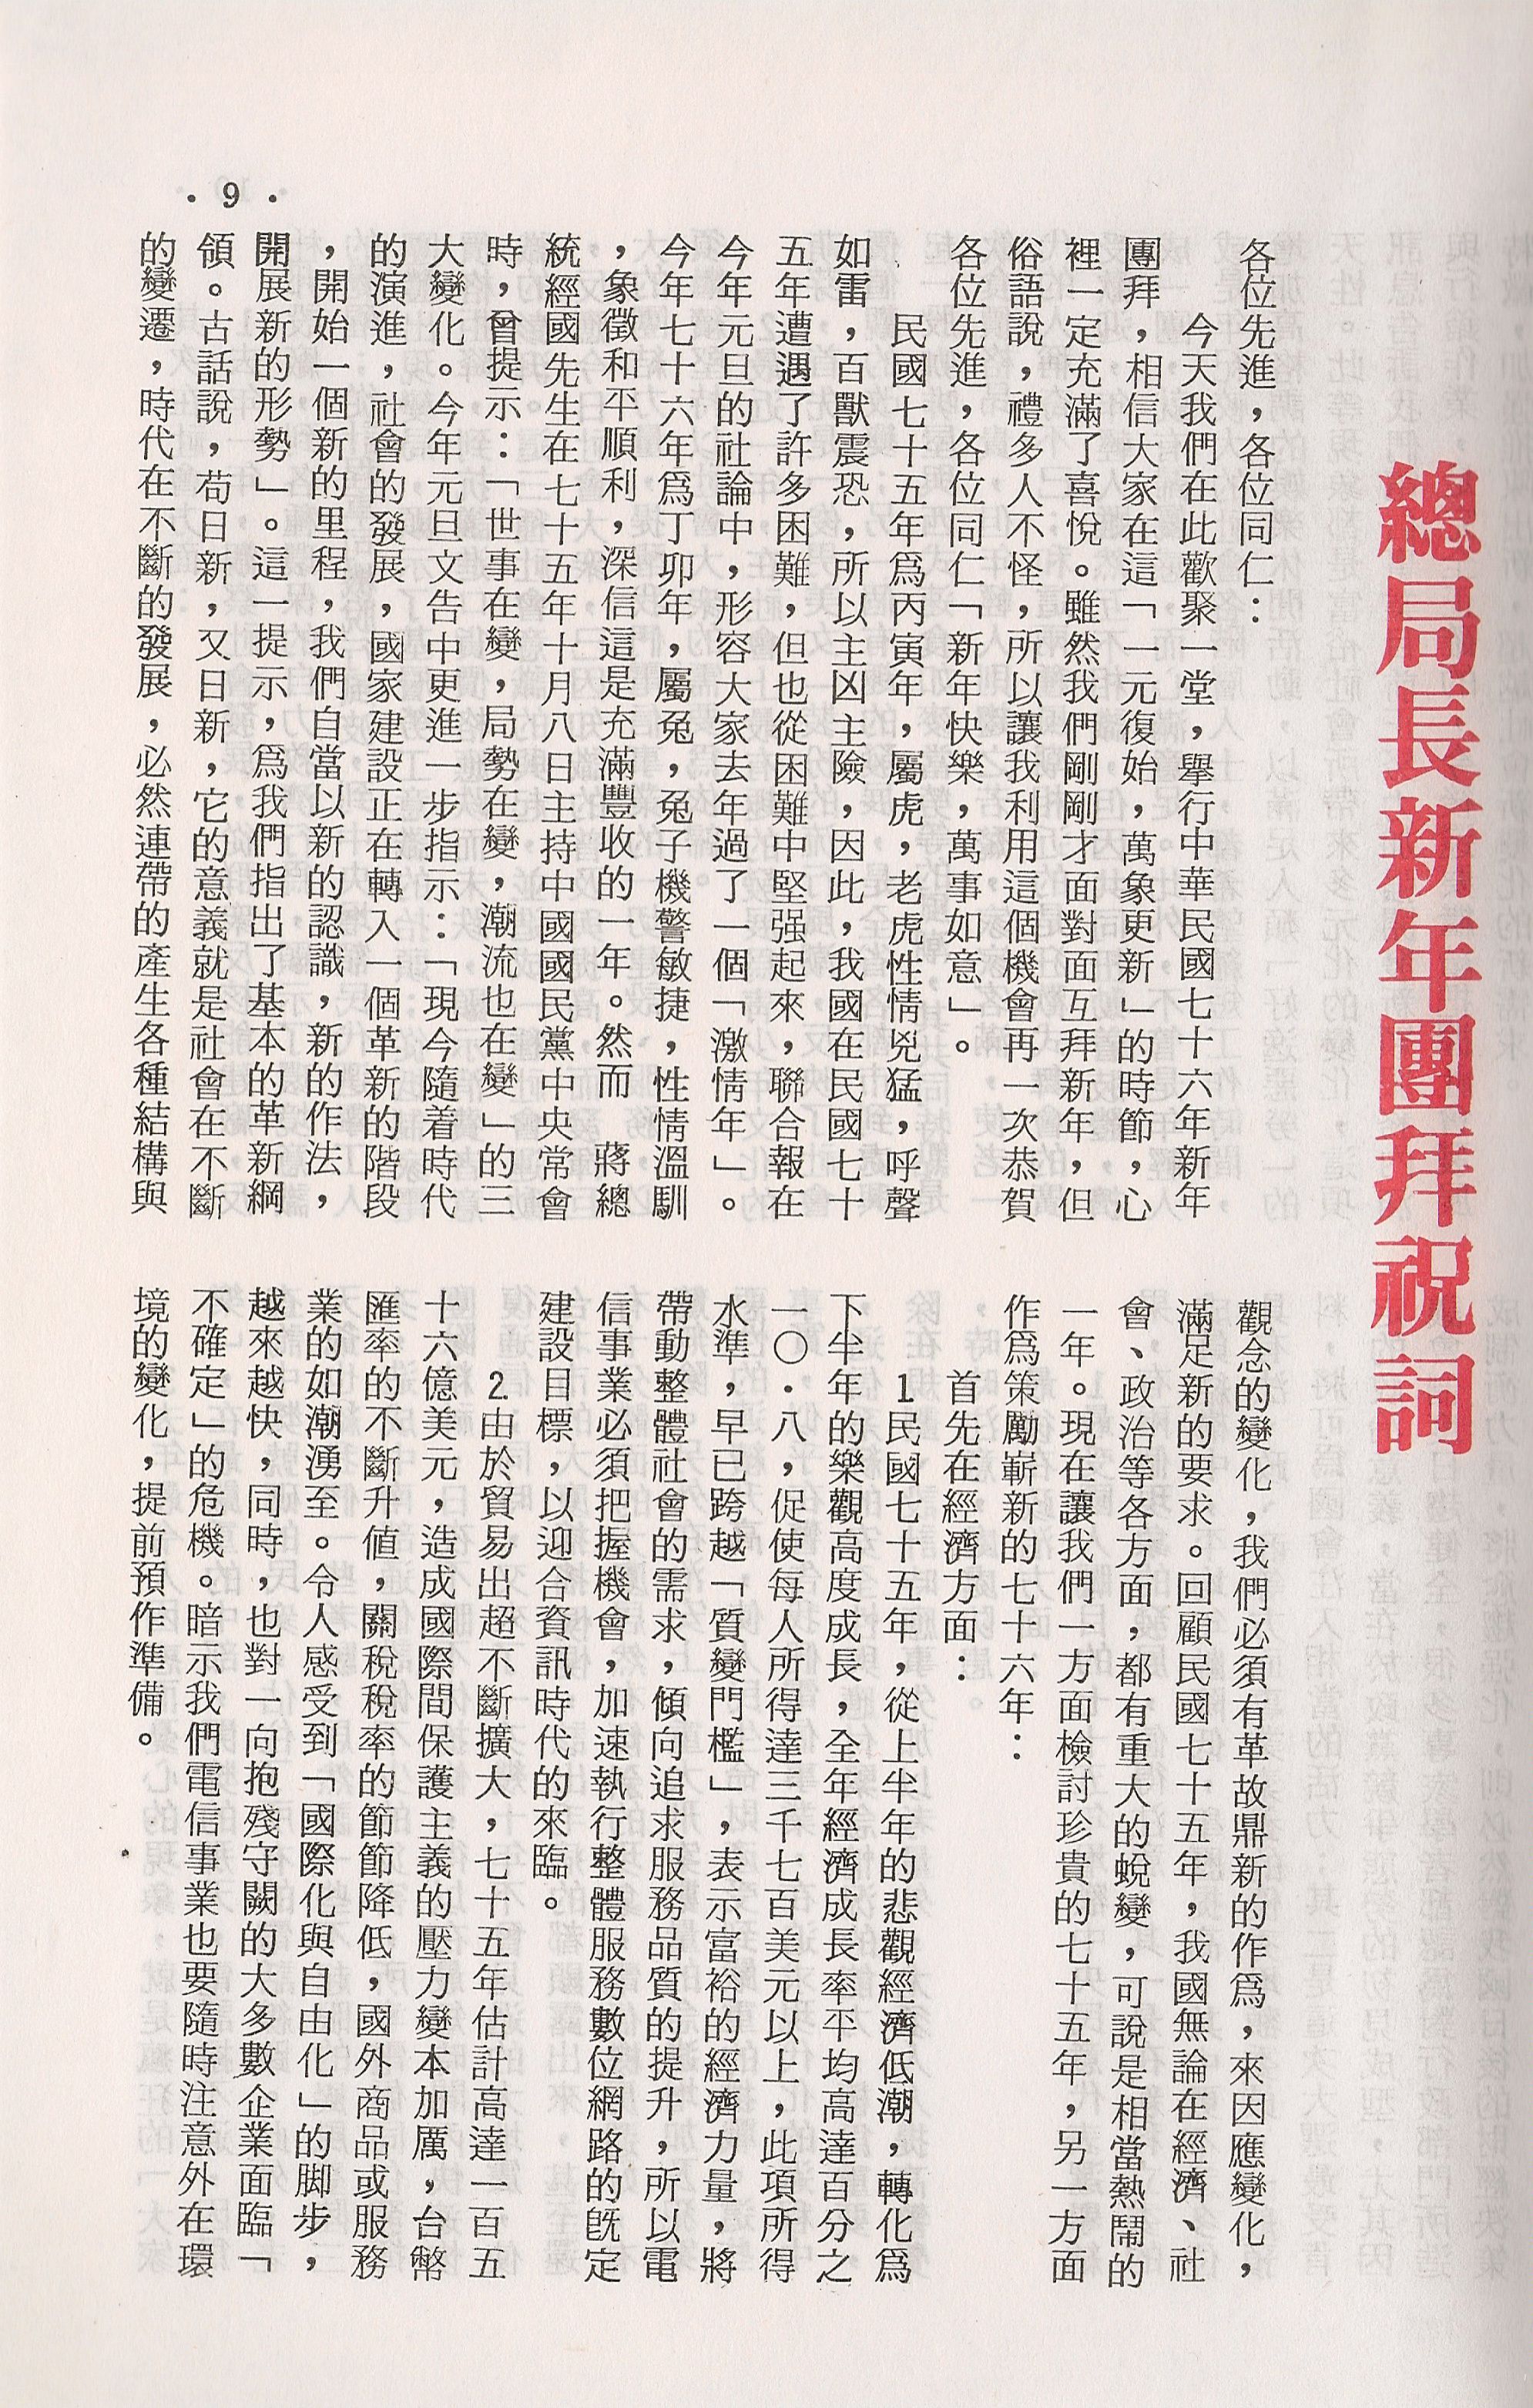 總局長新年團拜祝詞
各位先進，各位同仁：
今天我們在此歡聚一堂，舉行中華民國七十六年新年
團拜，相信大家在這「一元復始，萬象更新」的時節，心
裡一定充滿了喜悅。雖然我們剛剛才面對面互拜新年，但
俗語說，禮多人不怪，所以讓我利用這個機會再一次恭賀
各位先進，各位同仁「新年快樂，萬事如意」。
民國七十五年爲丙寅年，屬虎，老虎性情兇猛，呼聲
如雷，百獸震恐，所以主凶主險，因此，我國在民國七十
五年遭遇了許多困難，但也從困難中堅强起來，聯合報在
今年元旦的社論中，形容大家去年過了一個「激情年」。
今年七十六年爲丁卯年，屬兔，兔子機警敏捷，性情溫馴
，象徵和平順利，深信這是充滿豐收的一年。然而　蔣總
統經國先生在七十五年十月八日主持中國國民黨中央常會
時，曾提示：「世事在變，局勢在變，潮流也在變」的三
大變化。今年元旦文告中更進一步指示：「現今隨着時代
的演進，社會的發展，國家建設正在轉入一個革新的階段
，開始一個新的里程，我們自當以新的認識，新的作法，
開展新的形勢」。這一提示，爲我們指出了基本的革新綱
領。古話說，苟日新，又日新，它的意義就是社會在不斷
的變遷，時代在不斷的發展，必然連帶的產生各種結構與
觀念的變化，我們必須有革故鼎新的作爲，來因應變化，
滿足新的要求。回顧民國七十五年，我國無論在經濟、社
會、政治等各方面，都有重大的蛻變，可說是相當熱鬧的
一年。現在讓我們一方面檢討珍貴的七十五年，另一方面
作爲策勵嶄新的七十六年：
首先在經濟方面：
1民國七十五年，從上半年的悲觀經濟低潮，轉化爲
下半年的樂觀高度成長，全年經濟成長率平均高達百分之
一〇．八，促使每人所得達三千七百美元以上，此項所得
水準，早已跨越「質變門檻」，表示富裕的經濟力量，將
帶動整體社會的需求，傾向追求服務品質的提升，所以電
信事業必須把握機會，加速執行整體服務數位網路的旣定
建設目標，以迎合資訊時代的來臨。
2.由於貿易出超不斷擴大，七十五年估計高達一百五
十六億美元，造成國際間保護主義的壓力變本加厲，台幣
匯率的不斷升值，關稅稅率的節節降低，國外商品或服務
業的如潮湧至。令人感受到「國際化與自由化」的脚步，
越來越快，同時，也對一向抱殘守闕的大多數企業面臨「
不確定」的危機。暗示我們電信事業也要隨時注意外在環
境的變化，提前預作準備。
．9．